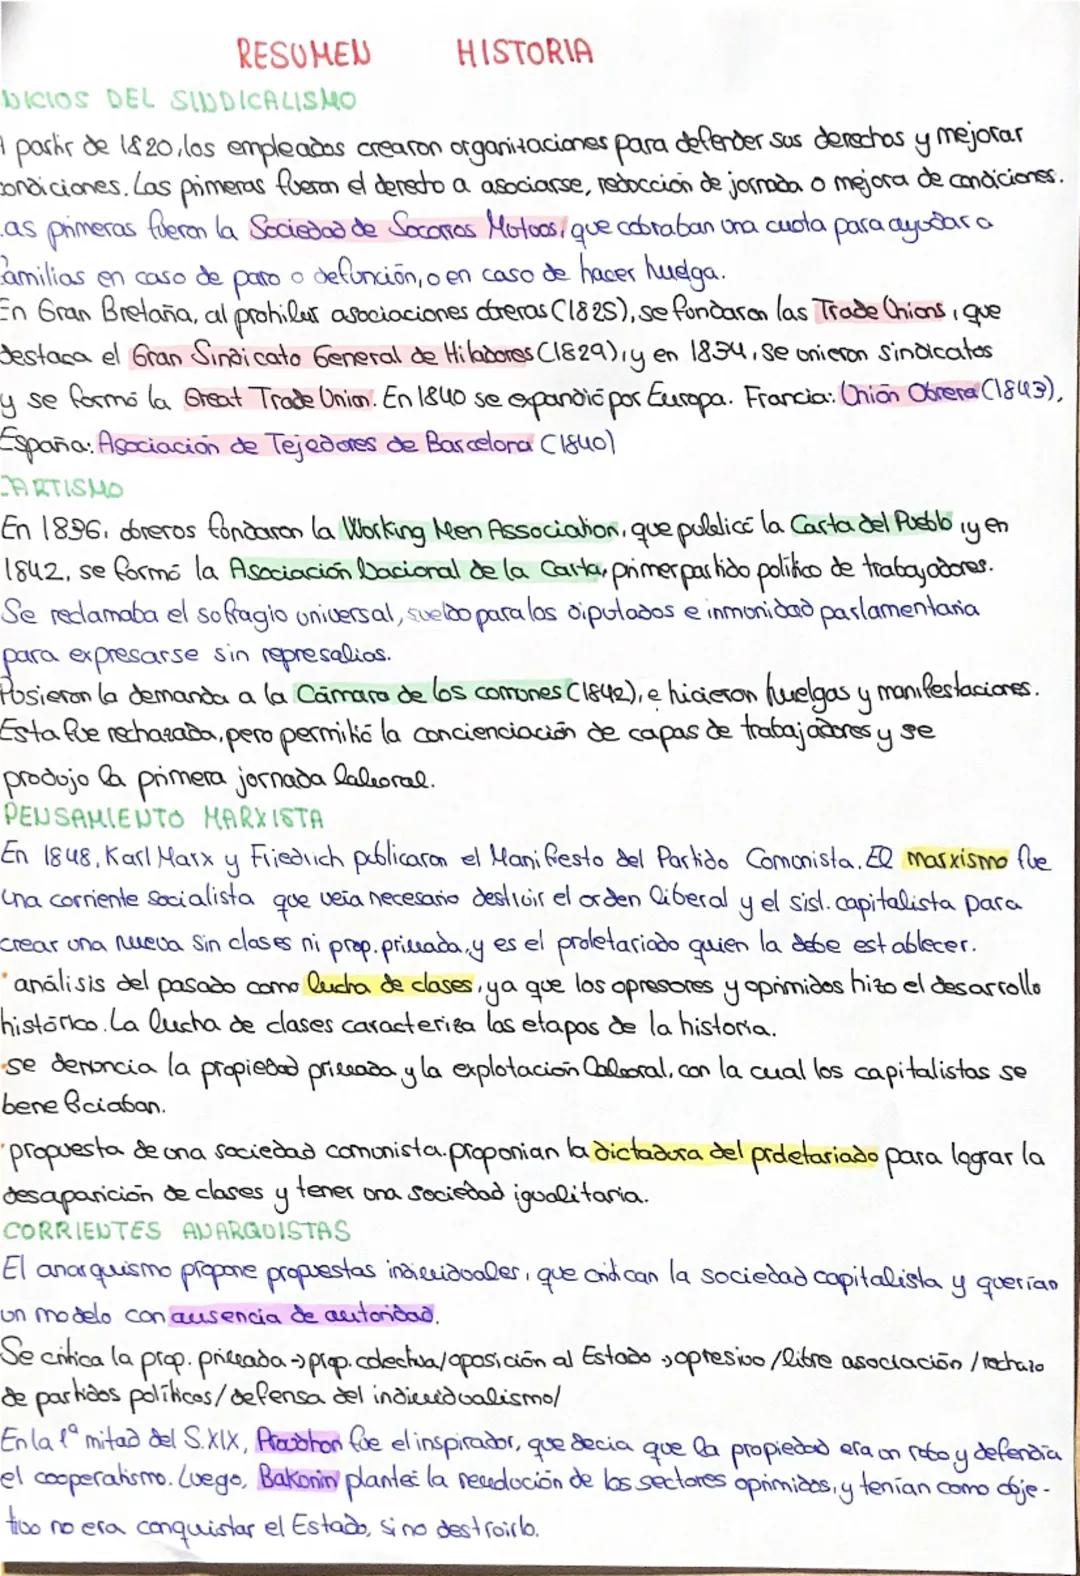 RESUMEN HISTORIA
NICIOS DEL SINDICALISMO
A partir de 1820, los empleados crearon organizaciones para defender sus derechos y mejorar
condiciones. Las primeras fueron el derecho a asociarse, reducción de jornada o mejora de condiciones.
Las primeras fueron la Sociedad de Socorros Mutuos, que cobraban una cuota para ayudar a
familias en caso de paro o defunción, o en caso de hacer huelga.
En Gran Bretaña, al prohibir asociaciones obreras (1825), se fundaron las Trade Unions, que
destaca el Gran Sindicato General de Hiladores (1829), y en 1834, se unieron sindicatos
y se formó la Great Trade Union. En 1840 se expandió por Europa. Francia: Unión Obrera (1843),
España: Asociación de Tejedores de Barcelona (1840)
CARTISMO
En 1836, obreros fundaron la Working Men Association, que publicó la Carta del Pueblo, y en
1842, se formó la Asociación Nacional de la Carta, primer partido político de trabajadores.
Se reclamaba el sufragio universal, sueldo para los diputados e inmunidad parlamentaria
para expresarse sin represalias.
Pusieron la demanda a la Cámara de los comunes (1842), e hicieron huelgas y manifestaciones.
Esta fue rechazada, pero permitió la concienciación de capas de trabajadores y se
produjo la primera jornada laboral.
PENSAMIENTO MARXISTA
En 1848, Karl Marx y Friedrich publicaron el Manifiesto del Partido Comunista. El marxismo fue
una corriente socialista que veía necesario destruir el orden liberal y el sist. capitalista para
crear una nueva sin clases ni prop. privada, y es el proletariado quien la debe establecer.
· análisis del pasado como lucha de clases, ya que los opresores y oprimidos hizo el desarrollo
histórico. La lucha de clases caracteriza las etapas de la historia.
·se denuncia la propiedad privada y la explotación laboral, con la cual los capitalistas se
beneficiaban.
·propuesta de una sociedad comunista. proponían la dictadura del proletariado para lograr la
desaparición de clases y tener una sociedad igualitaria.
CORRIENTES ANARQUISTAS
El anarquismo propone propuestas individuales, que critican la sociedad capitalista y querían
un modelo con ausencia de autoridad.
Se critica la prop. privada → prop. colectiva / oposición al Estado → opresivo / libre asociación / rechazo
de partidos políticos / defensa del individualismo /
En la 1ª mitad del S.XIX, Proudhon fue el inspirador, que decía que la propiedad era un robo y defendía
el cooperatismo. Luego, Bakunin planteó la revolución de los sectores oprimidos, y tenían como obje-
tivo no era conquistar el Estado, sino destruirlo.